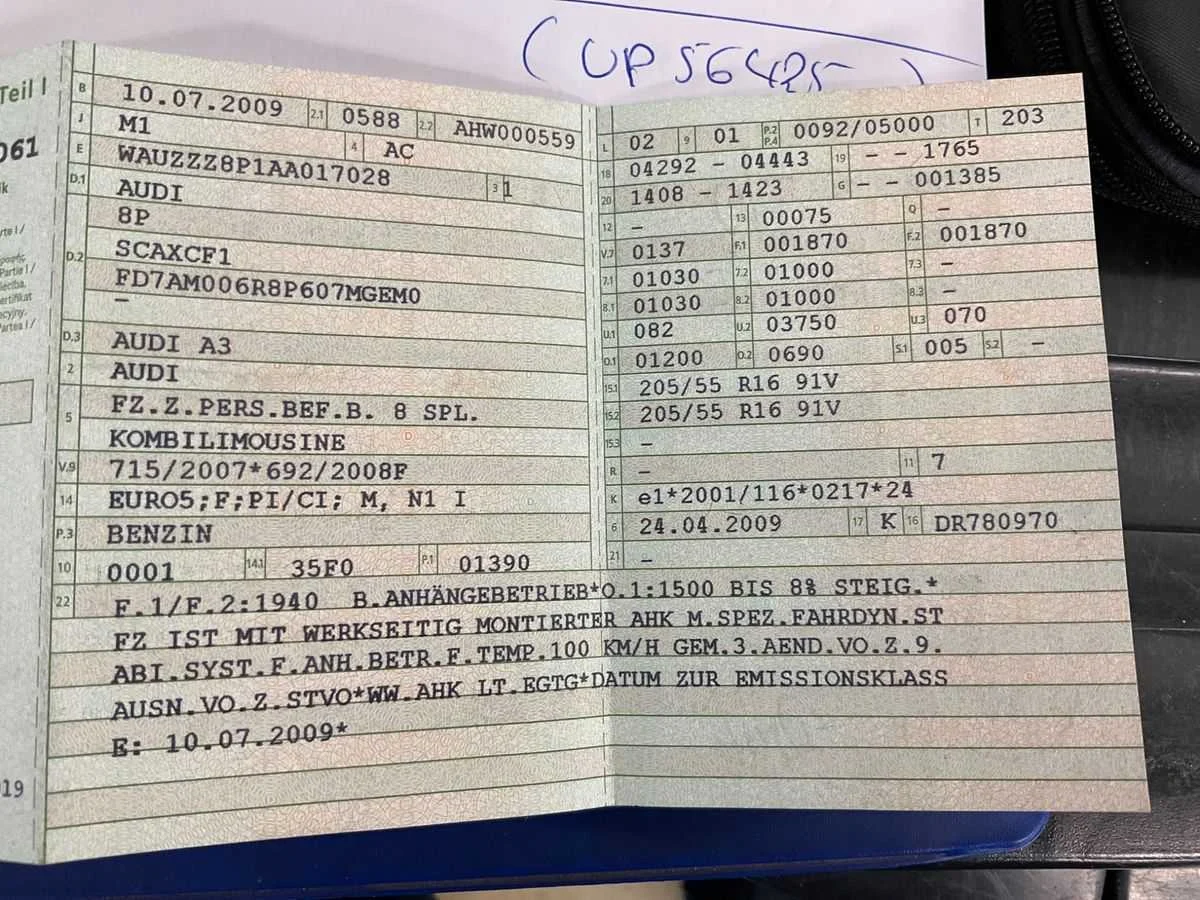 ( UP 56425 )
Teil I
061
019
B 10.07.2009 2.1 0588 2.2 AHW000559
J M1 4 AC
E WAUZZZ8P1AA017028 3 1
D.1 AUDI
8P
D.2 SCAXCF1
FD7AM006R8P607MGEM0
–
D.3 AUDI A3
2 AUDI
5 FZ.Z.PERS.BEF.B. 8 SPL.
KOMBILIMOUSINE
V.9 715/2007*692/2008F
14 EURO5;F;PI/CI; M, N1 I
P.3 BENZIN
10 0001 14.1 35F0 P.1 01390
L 02 9 01 P.2 P.4 0092/05000 T 203
18 04292 - 04443 19 – – 1765
20 1408 - 1423 G – – 001385
12 – 13 00075 Q –
V.7 0137 F.1 001870 F.2 001870
7.1 01030 7.2 01000 7.3 –
8.1 01030 8.2 01000 8.3 –
U.1 082 U.2 03750 U.3 070
O.1 01200 O.2 0690 S.1 005 S.2 –
15.1 205/55 R16 91V
15.2 205/55 R16 91V
15.3 –
R – 11 7
K e1*2001/116*0217*24
6 24.04.2009 17 K 16 DR780970
21 –
22 F.1/F.2:1940 B.ANHÄNGEBETRIEB*O.1:1500 BIS 8% STEIG.*
FZ IST MIT WERKSEITIG MONTIERTER AHK M.SPEZ.FAHRDYN.ST
ABI.SYST.F.ANH.BETR.F.TEMP.100 KM/H GEM.3.AEND.VO.Z.9.
AUSN.VO.Z.STVO*WW.AHK LT.EGTG*DATUM ZUR EMISSIONSKLASS
E: 10.07.2009*